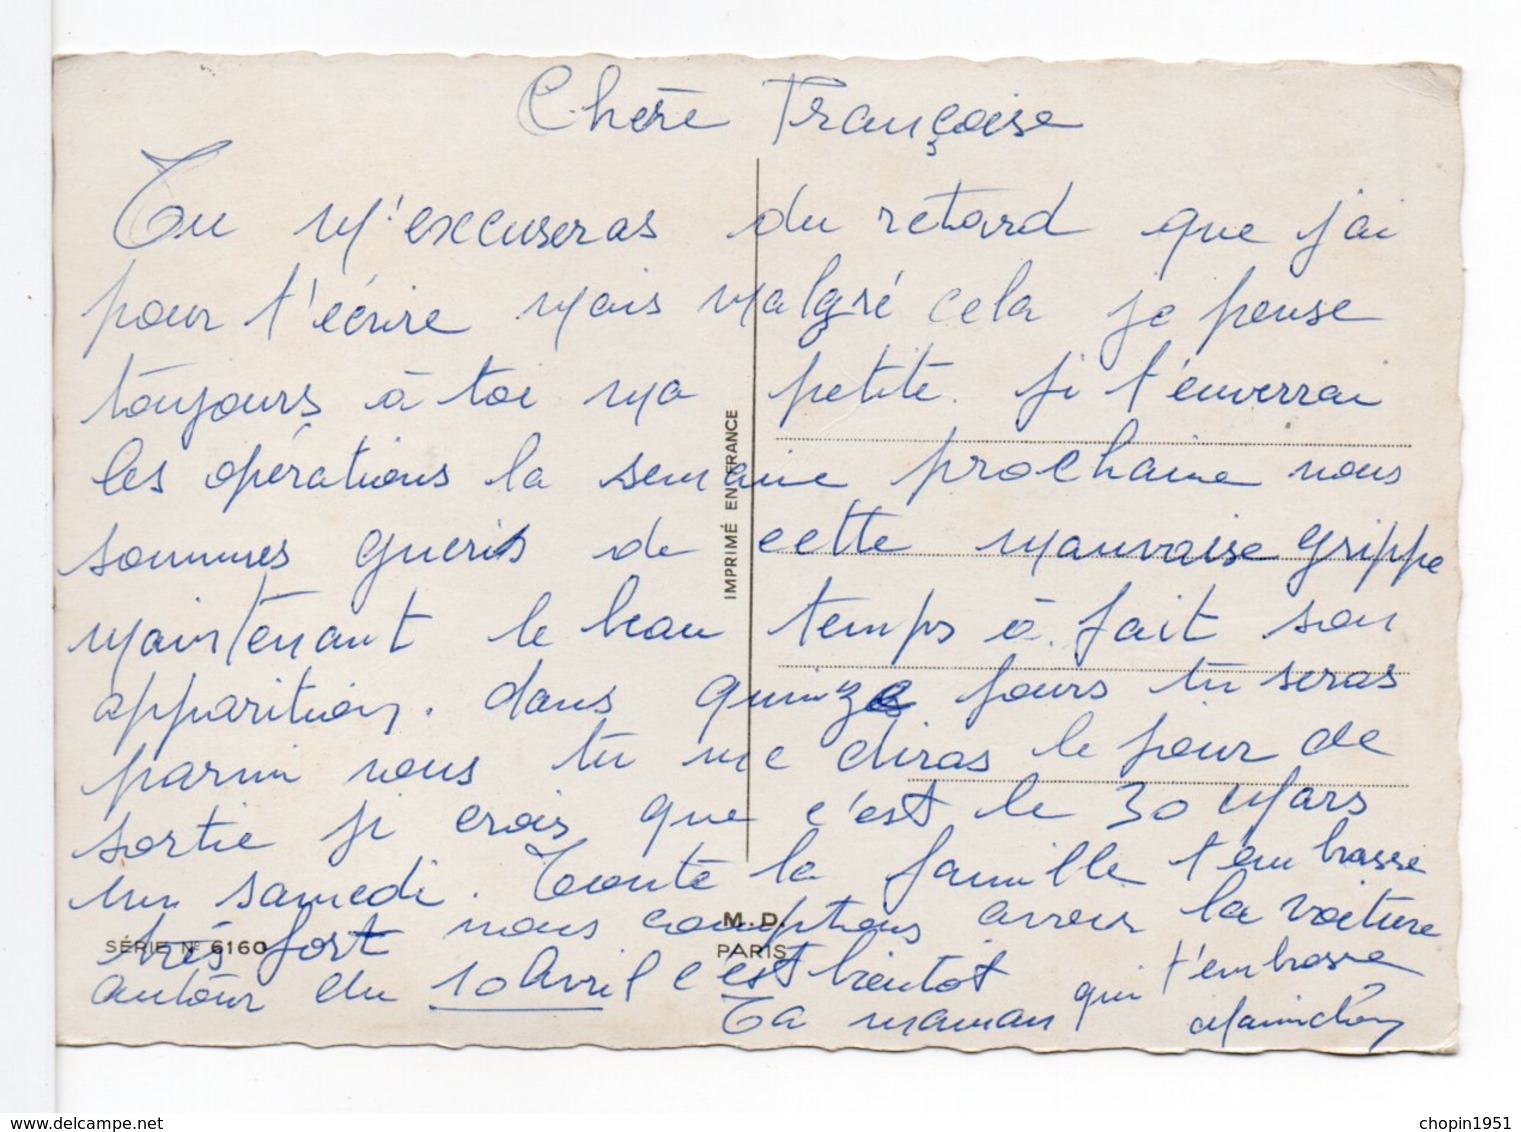 Chère Françoise
Tu m'excuseras du retard que j'ai
pour t'écrire mais malgré cela je pense
toujours à toi ma petite. ji t'enverrai
les opérations la semaine prochaine nous
sommes gueris de cette mauvaise grippe
maintenant le beau temps à fait son
apparition. dans quinze jours tu seras
parmi nous tu me diras le jour de
sortie ji crois que c'est le 30 Mars
un samedi. Toute la famille t'embrasse
très fort nous comptons avoir la voiture
autour du 10 Avril c'est bientot
Ta maman qui t'embrasse
IMPRIMÉ EN FRANCE
SÉRIE Nº 6160
M.D.
PARIS
chopin1951
delcampe.net